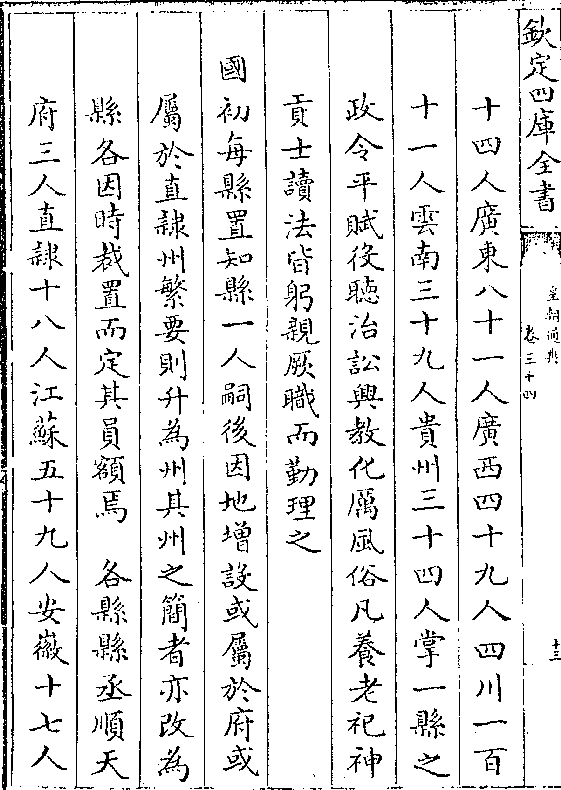 欽定四庫全書
皇朝通典
卷三十四
十三
十四人廣東八十一人廣西四十九人四川一百
十一人雲南三十九人貴州三十四人掌一縣之
政令平賦役聽治訟興教化厲風俗凡養老祀神
貢士讀法皆躬親厥職而勤理之
國初每縣置知縣一人嗣後因地增設或屬於府或
屬於直隸州繁要則升為州其州之簡者亦改為
縣各因時裁置而定其員額焉 各縣縣丞順天
府三人直隸十八人江蘇五十九人安徽十七人